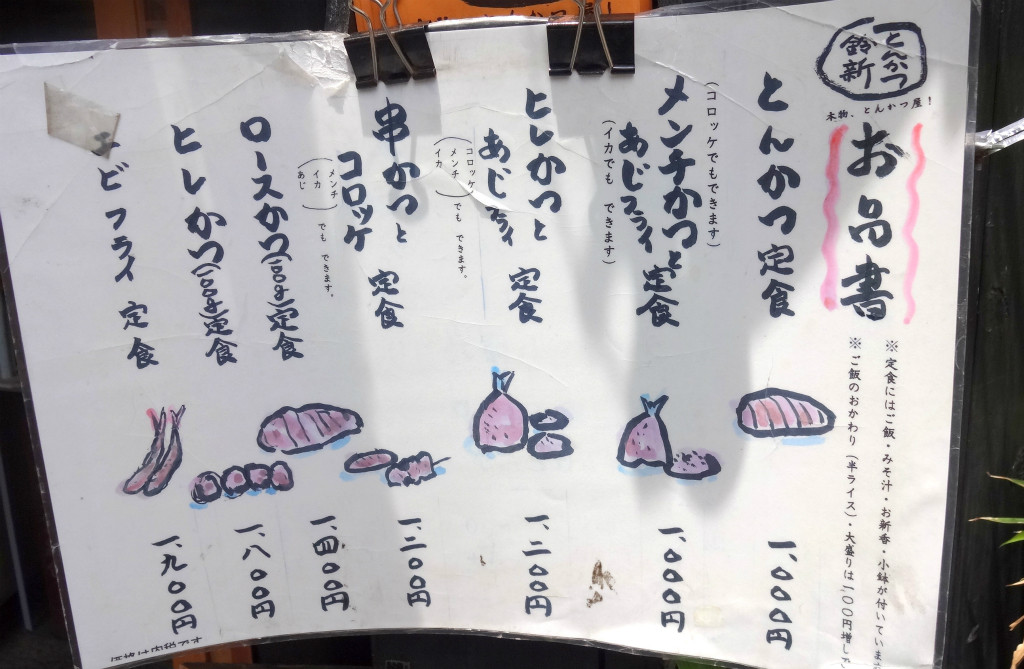 とんかつ
鈴新
本物、とんかつ屋!
お品書
※定食にはご飯・みそ汁・お新香・小鉢が付いていま
※ご飯のおかわり(半ライス)・大盛りは100円増しで
とんかつ定食
一、〇〇〇円
(コロッケでもできます)
メンチかつと
あじフライ定食
(イカでも できます)
一、〇〇〇円
ヒレかつと
あじフライ
定食
(コロッケ
メンチ
イカ)でも できます。
一、二〇〇円
串かつと
コロッケ
定食
(メンチ
イカ
あじ)でも できます。
一、二〇〇円
ロースかつ(100g)定食
一、四〇〇円
ヒレかつ(100g)定食
一、八〇〇円
エビフライ定食
一、九〇〇円
価格は内税です